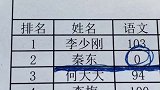 排名 姓名 语文
1 李少刚 103
2 秦东 0
3 何大大 94